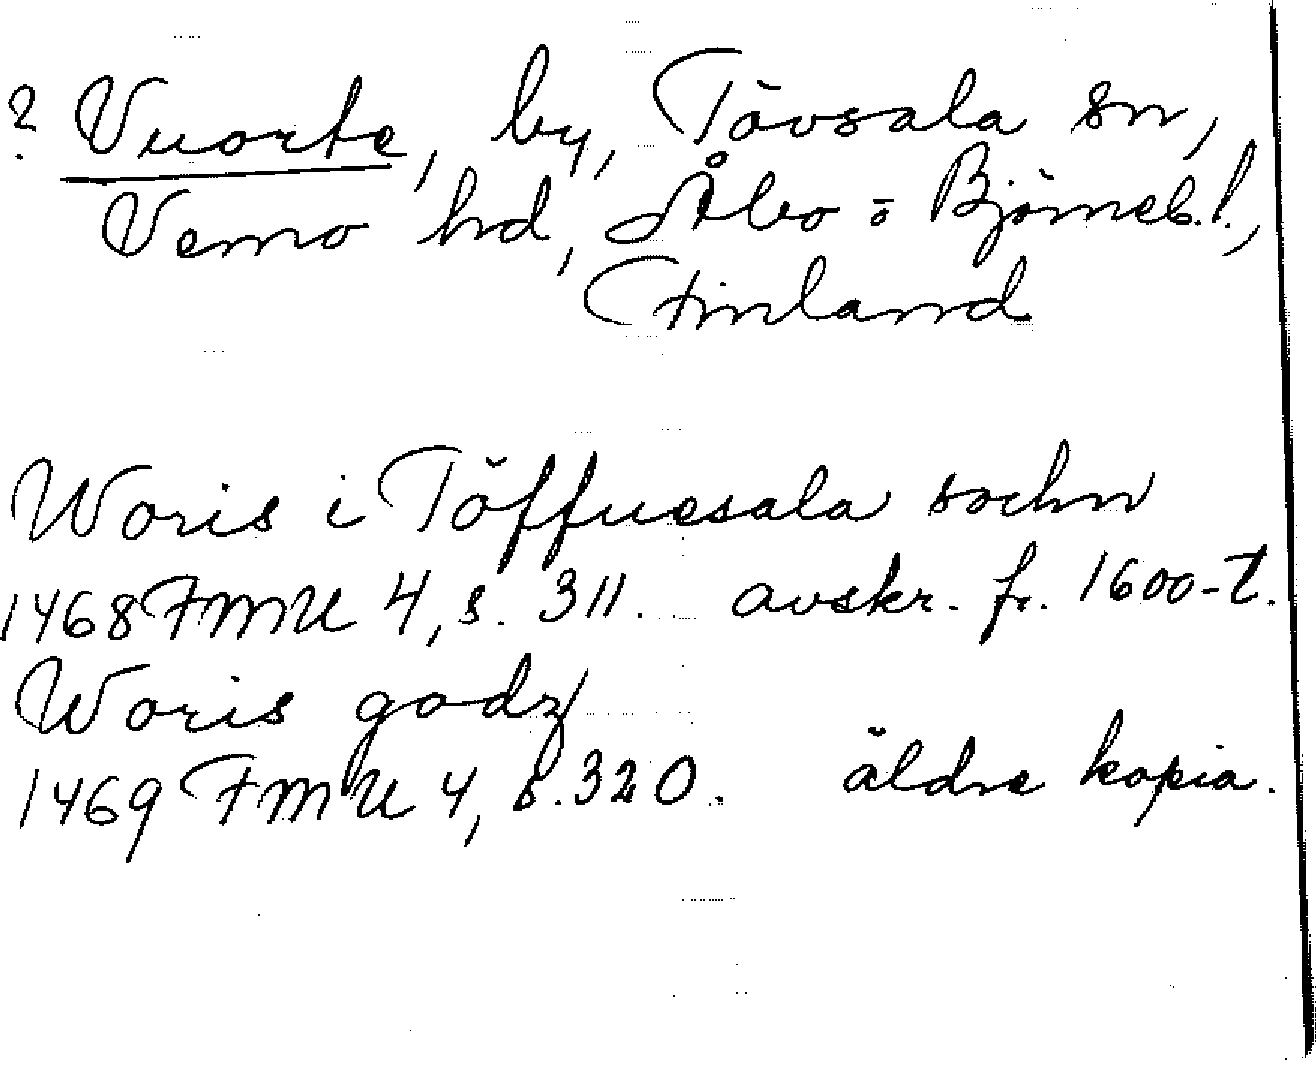 ? Vuorte, by, Tövsala sn,
Vemo hd, Åbo o Björneb. l.,
Finland
Woris i Töffuesala sochn
1468 FMU 4, s. 311. avskr. fr. 1600-t.
Woris godz
1469 FMU 4, s. 320. äldre kopia.